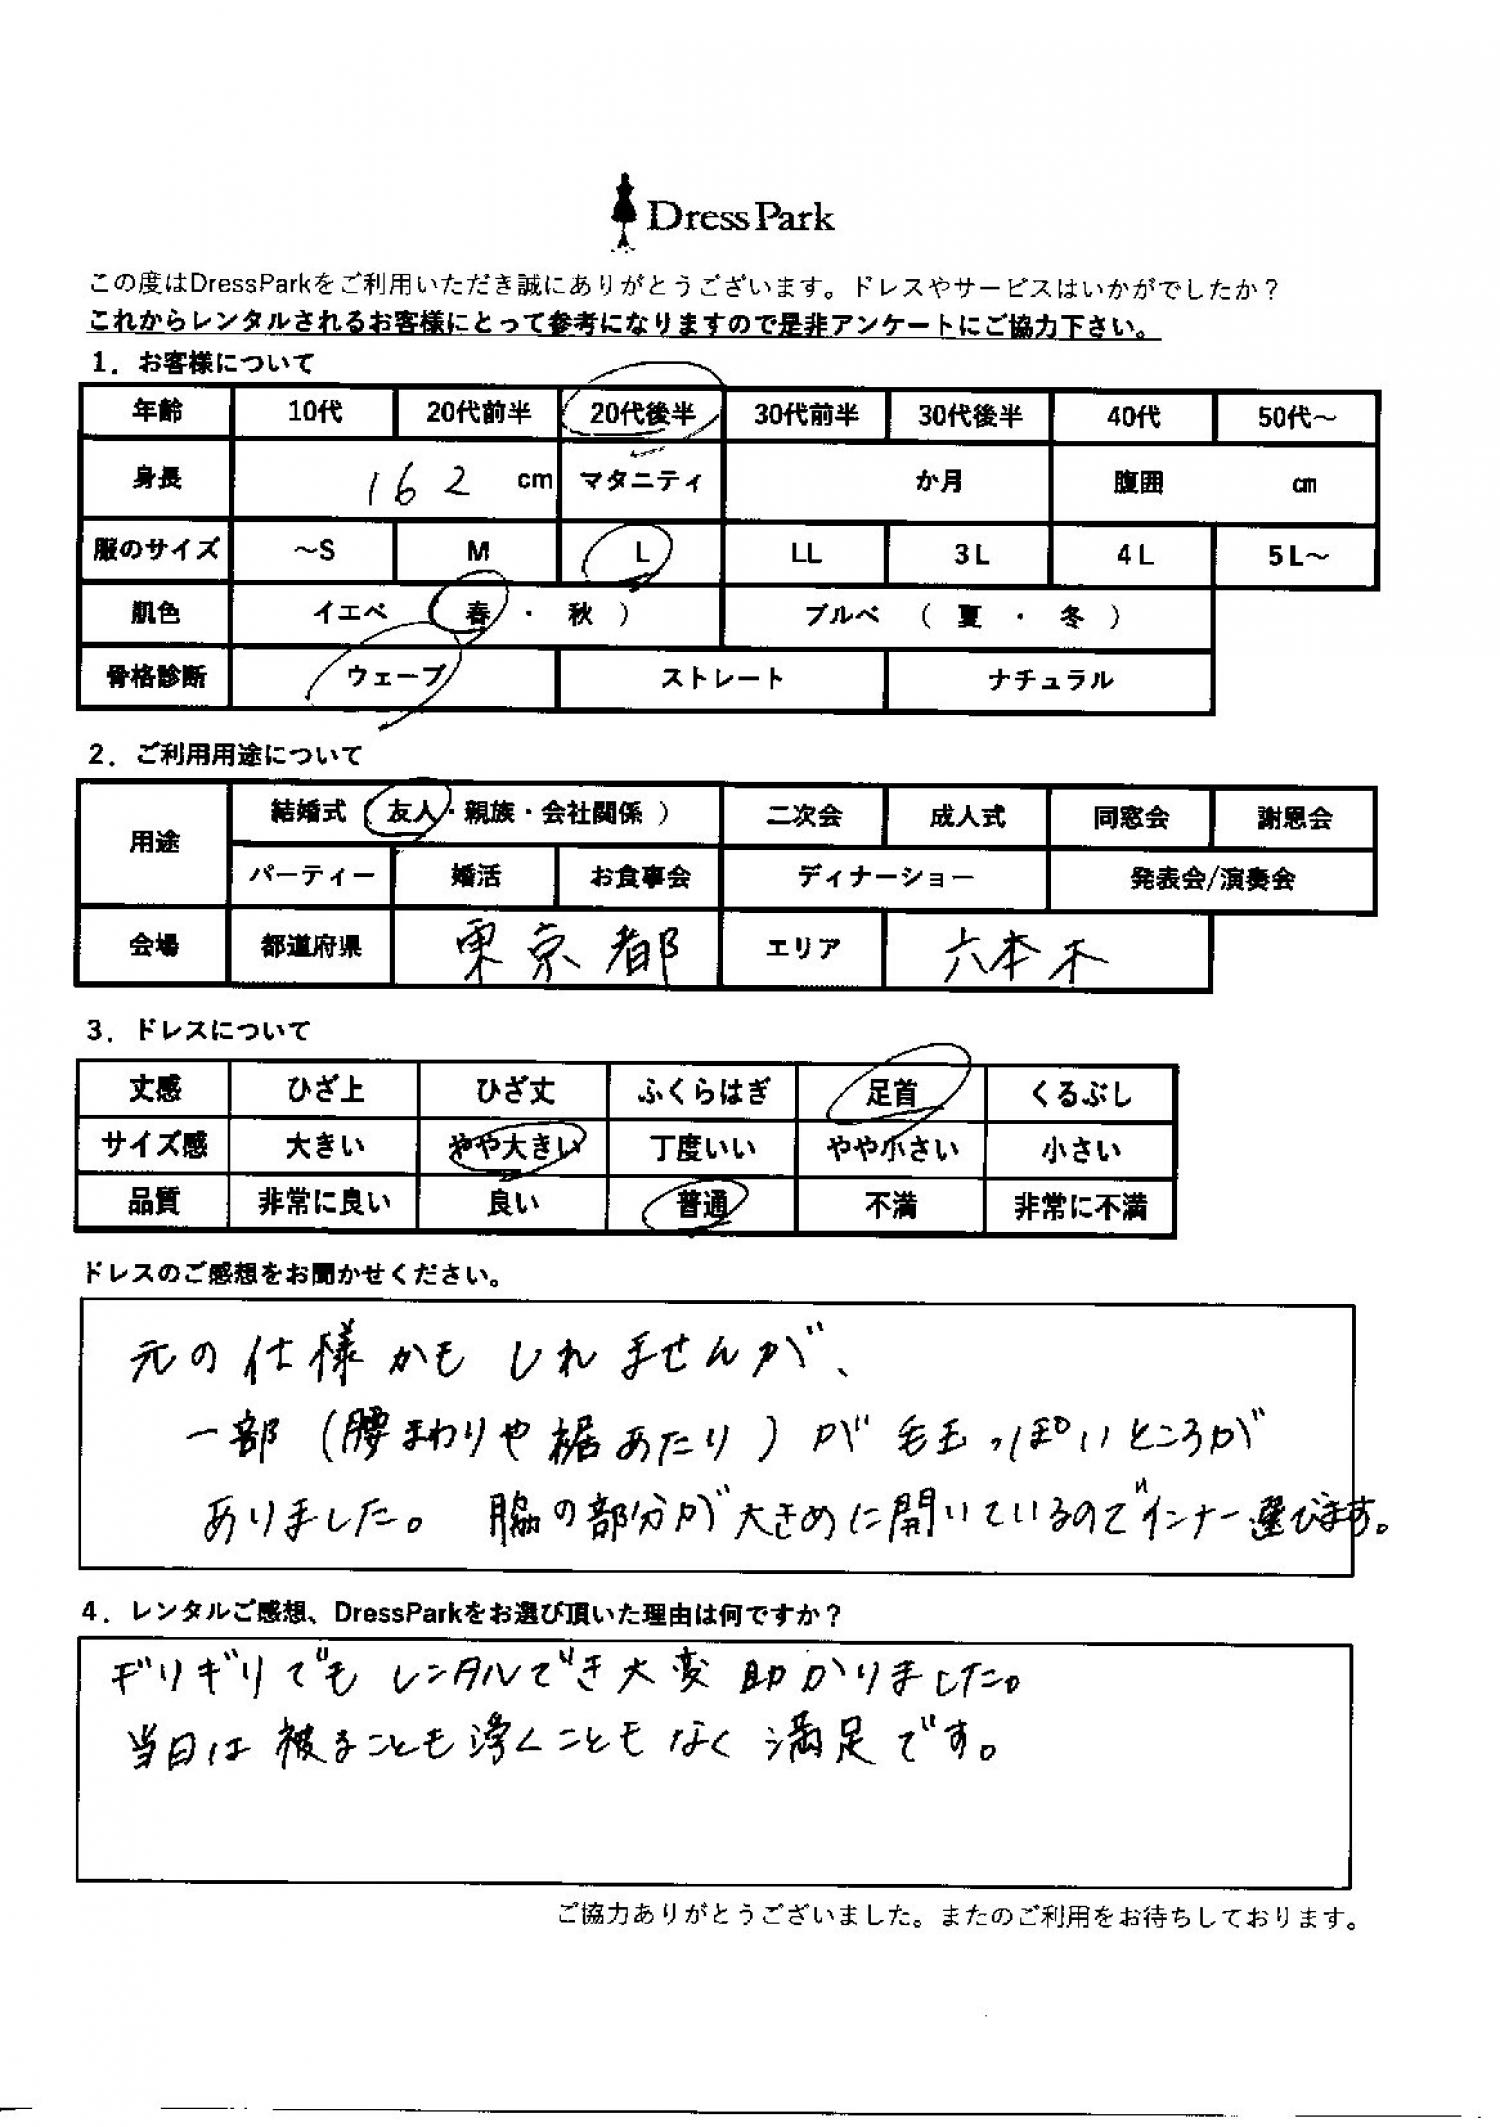 DressPark
この度はDressParkをご利用いただき誠にありがとうございます。ドレスやサービスはいかがでしたか？
これからレンタルされるお客様にとって参考になりますので是非アンケートにご協力下さい。
1．お客様について
年齢 10代 20代前半 20代後半 30代前半 30代後半 40代 50代～
身長 162 cm マタニティ か月 腹囲 ㎝
服のサイズ ～S M L LL 3L 4L 5L～
肌色 イエベ （ 春 ・ 秋 ） ブルベ （ 夏 ・ 冬 ）
骨格診断 ウェーブ ストレート ナチュラル
2．ご利用用途について
用途 結婚式（ 友人・親族・会社関係 ） 二次会 成人式 同窓会 謝恩会
パーティー 婚活 お食事会 ディナーショー 発表会/演奏会
会場 都道府県 東京都 エリア 六本木
3．ドレスについて
丈感 ひざ上 ひざ丈 ふくらはぎ 足首 くるぶし
サイズ感 大きい やや大きい 丁度いい やや小さい 小さい
品質 非常に良い 良い 普通 不満 非常に不満
ドレスのご感想をお聞かせください。
元の仕様かもしれませんが、
一部（腰まわりや裾あたり）が毛玉っぽいところが
ありました。脇の部分が大きめに開いているのでインナー選びます。
4．レンタルご感想、DressParkをお選び頂いた理由は何ですか？
ギリギリでもレンタルでき大変助かりました。
当日は被ることも浮くこともなく満足です。
ご協力ありがとうございました。またのご利用をお待ちしております。